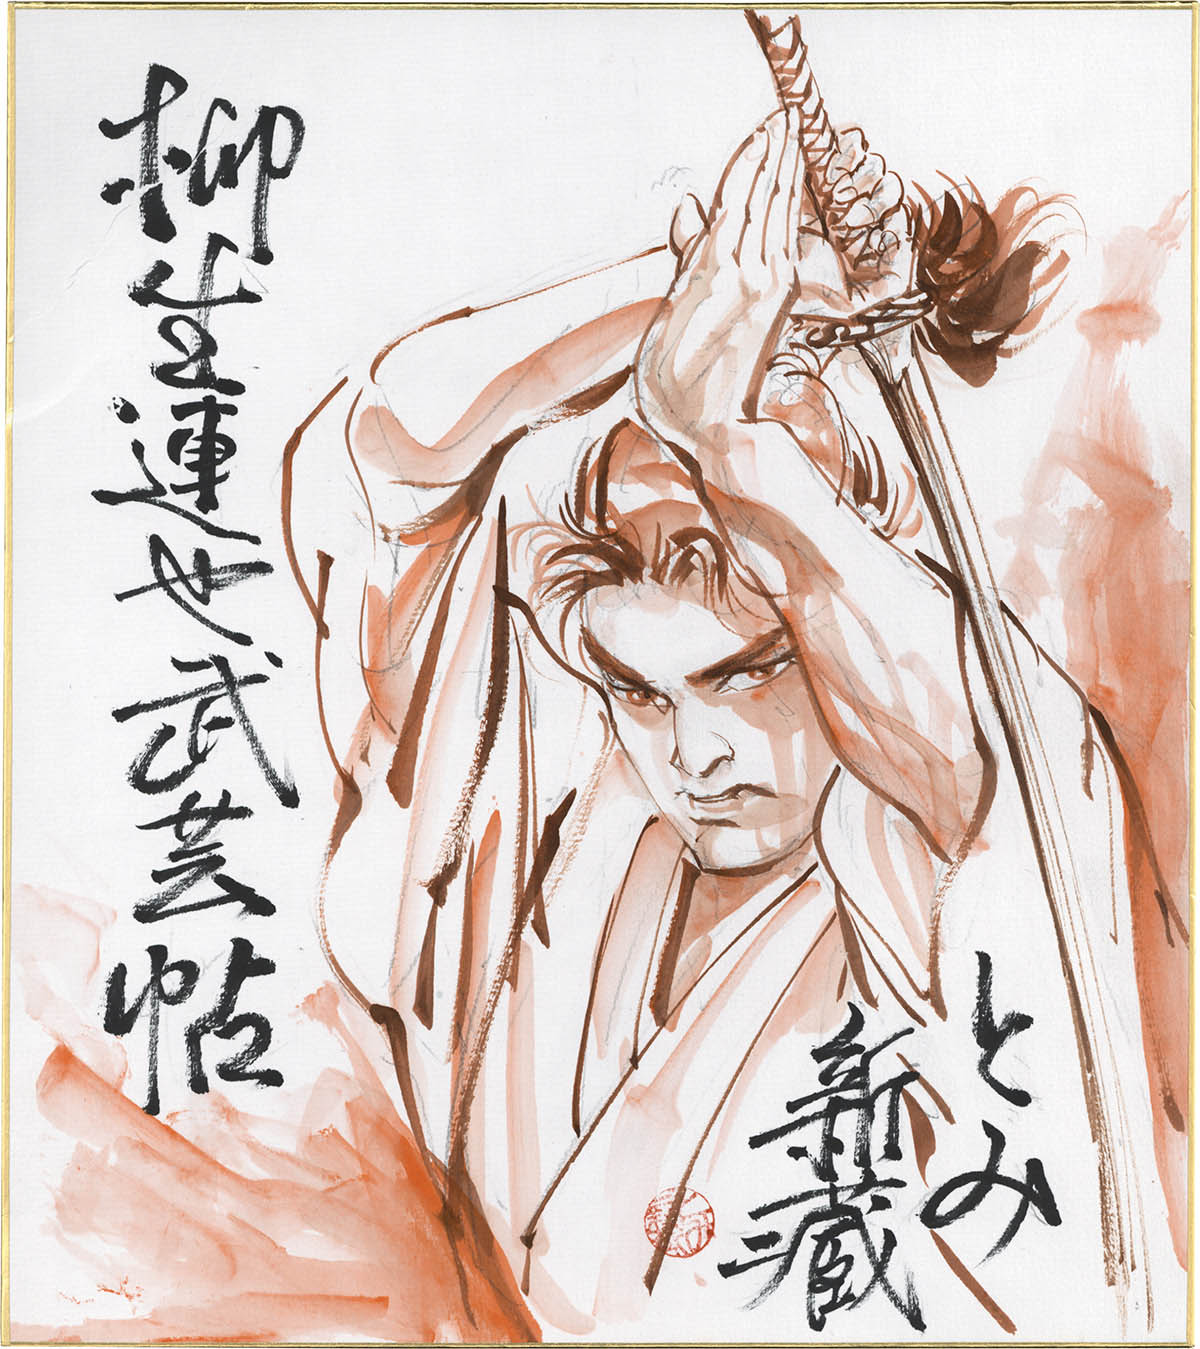 柳生連也武芸帖
とみ
新藏